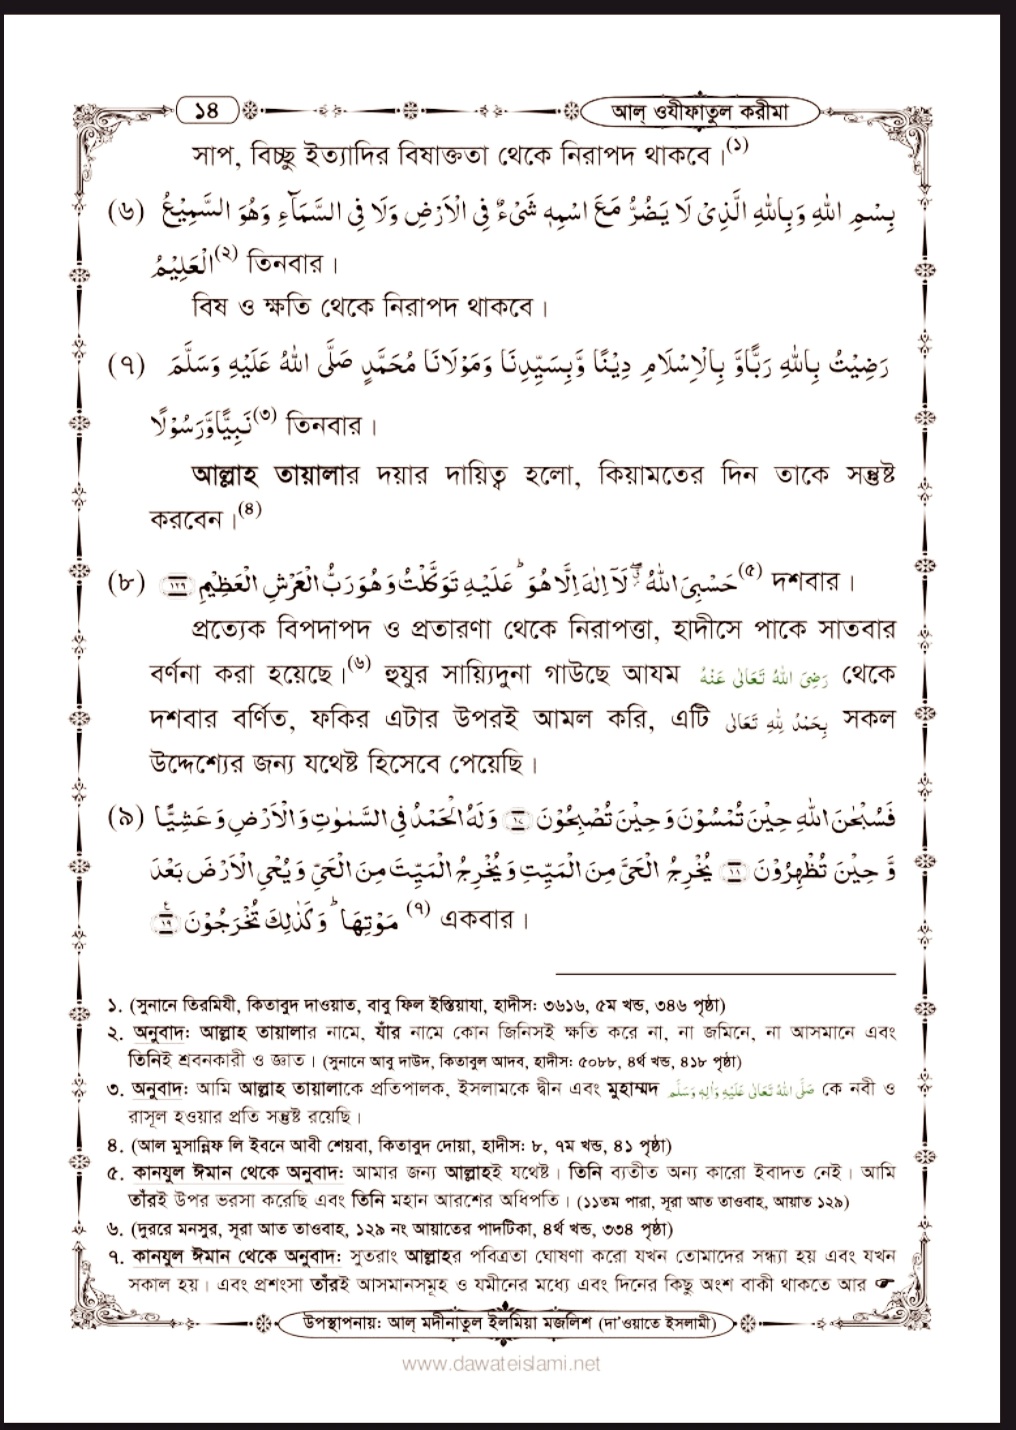 ১৪
আল্ ওযীফাতুল করীমা
সাপ, বিচ্ছু ইত্যাদির বিষাক্ততা থেকে নিরাপদ থাকবে।(১)
(৬) بِسْمِ اللهِ وَبِاللهِ الَّذِیْ لَا یَضُرُّ مَعَ اسْمِهٖ شَیْءٌ فِی الْاَرْضِ وَلَا فِی السَّمَآءِ وَهُوَ السَّمِیْعُ
الْعَلِیْمُ(২) তিনবার।
বিষ ও ক্ষতি থেকে নিরাপদ থাকবে।
(৭) رَضِیْتُ بِاللهِ رَبًّاوَّ بِالْاِسْلَامِ دِیْنًا وَّبِسَیِّدِنَا وَمَوْلَانَا مُحَمَّدٍ صَلَّی اللهُ عَلَیْهِ وَسَلَّمَ
نَبِیًّاوَّرَسُوْلًا(৩) তিনবার।
আল্লাহ তায়ালার দয়ার দায়িত্ব হলো, কিয়ামতের দিন তাকে সন্তুষ্ট
করবেন।(৪)
(৮) حَسْبِیَ اللهُ ۖ٘ لَاۤ اِلٰهَ اِلَّا هُوَ ؕ عَلَیْهِ تَوَكَّلْتُ وَ هُوَ رَبُّ الْعَرْشِ الْعَظِیْمِ ﴿۱۲۹﴾ (৫) দশবার।
প্রত্যেক বিপদাপদ ও প্রতারণা থেকে নিরাপত্তা, হাদীসে পাকে সাতবার
বর্ণনা করা হয়েছে।(৬) হুযুর সায়্যিদুনা গাউছে আযম رَضِیَ اللهُ تَعَالٰی عَنْهُ থেকে
দশবার বর্ণিত, ফকির এটার উপরই আমল করি, এটি بِحَمْدُ لِلّٰهِ تَعَالٰی সকল
উদ্দেশ্যের জন্য যথেষ্ট হিসেবে পেয়েছি।
(৯) فَسُبْحٰنَ اللهِ حِیْنَ تُمْسُوْنَ وَ حِیْنَ تُصْبِحُوْنَ ﴿۱۷﴾ وَ لَهُ الْحَمْدُ فِی السَّمٰوٰتِ وَ الْاَرْضِ وَ عَشِیًّا
وَّ حِیْنَ تُظْهِرُوْنَ ﴿۱۸﴾ یُخْرِجُ الْحَیَّ مِنَ الْمَیِّتِ وَ یُخْرِجُ الْمَیِّتَ مِنَ الْحَیِّ وَ یُحْیِ الْاَرْضَ بَعْدَ
مَوْتِهَا ؕ وَ كَذٰلِكَ تُخْرَجُوْنَ ﴿۱۹﴾ (৭) একবার।
১. (সুনানে তিরমিযী, কিতাবুদ দাওয়াত, বাবু ফিল ইস্তিয়াযা, হাদীস: ৩৬১৬, ৫ম খন্ড, ৩৪৬ পৃষ্ঠা)
২. অনুবাদ: আল্লাহ তায়ালার নামে, যাঁর নামে কোন জিনিসই ক্ষতি করে না, না জমিনে, না আসমানে এবং
তিনিই শ্রবনকারী ও জ্ঞাত। (সুনানে আবু দাউদ, কিতাবুল আদব, হাদীস: ৫০৮৮, ৪র্থ খন্ড, ৪১৮ পৃষ্ঠা)
৩. অনুবাদ: আমি আল্লাহ তায়ালাকে প্রতিপালক, ইসলামকে দ্বীন এবং মুহাম্মদ صَلَّی اللهُ تَعَالٰی عَلَیْهِ وَاٰلِهٖ وَسَلَّم কে নবী ও
রাসূল হওয়ার প্রতি সন্তুষ্ট রয়েছি।
৪. (আল মুসান্নিফ লি ইবনে আবী শেয়বা, কিতাবুদ দোয়া, হাদীস: ৮, ৭ম খন্ড, ৪১ পৃষ্ঠা)
৫. কানযুল ঈমান থেকে অনুবাদ: আমার জন্য আল্লাহই যথেষ্ট। তিনি ব্যতীত অন্য কারো ইবাদত নেই। আমি
তাঁরই উপর ভরসা করেছি এবং তিনি মহান আরশের অধিপতি। (১১তম পারা, সূরা আত তাওবাহ, আয়াত ১২৯)
৬. (দুররে মনসুর, সূরা আত তাওবাহ, ১২৯ নং আয়াতের পাদটিকা, ৪র্থ খন্ড, ৩৩৪ পৃষ্ঠা)
৭. কানযুল ঈমান থেকে অনুবাদ: সুতরাং আল্লাহর পবিত্রতা ঘোষণা করো যখন তোমাদের সন্ধ্যা হয় এবং যখন
সকাল হয়। এবং প্রশংসা তাঁরই আসমানসমূহ ও যমীনের মধ্যে এবং দিনের কিছু অংশ বাকী থাকতে আর ☞
উপস্থাপনায়: আল্ মদীনাতুল ইলমিয়া মজলিশ (দা'ওয়াতে ইসলামী)
www.dawateislami.net